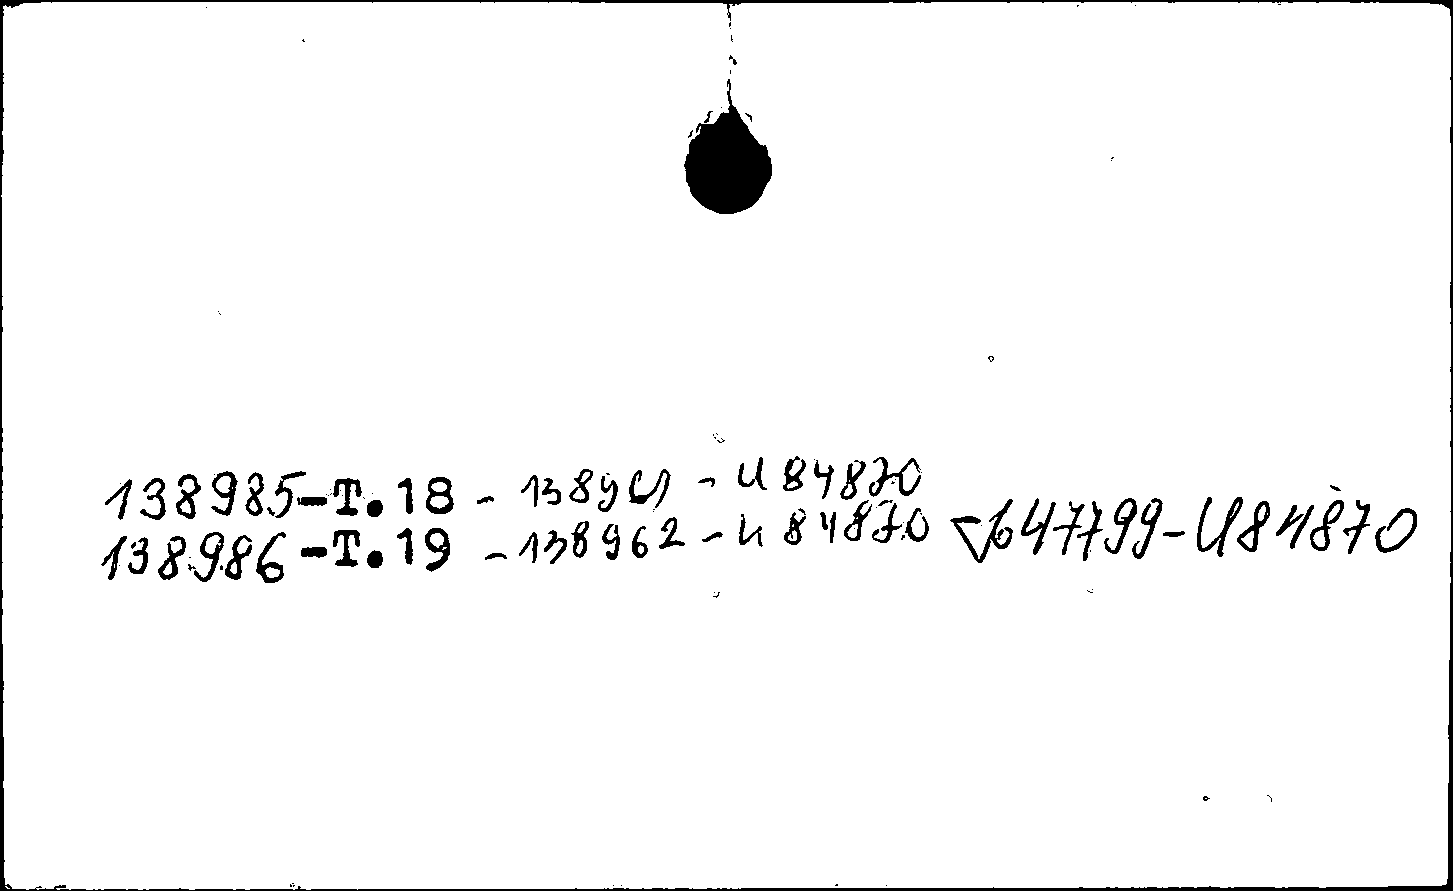 138985-T.18 - 138961 - И 84870
138986-T.19 - 138962 - И 84870 647799-И84870